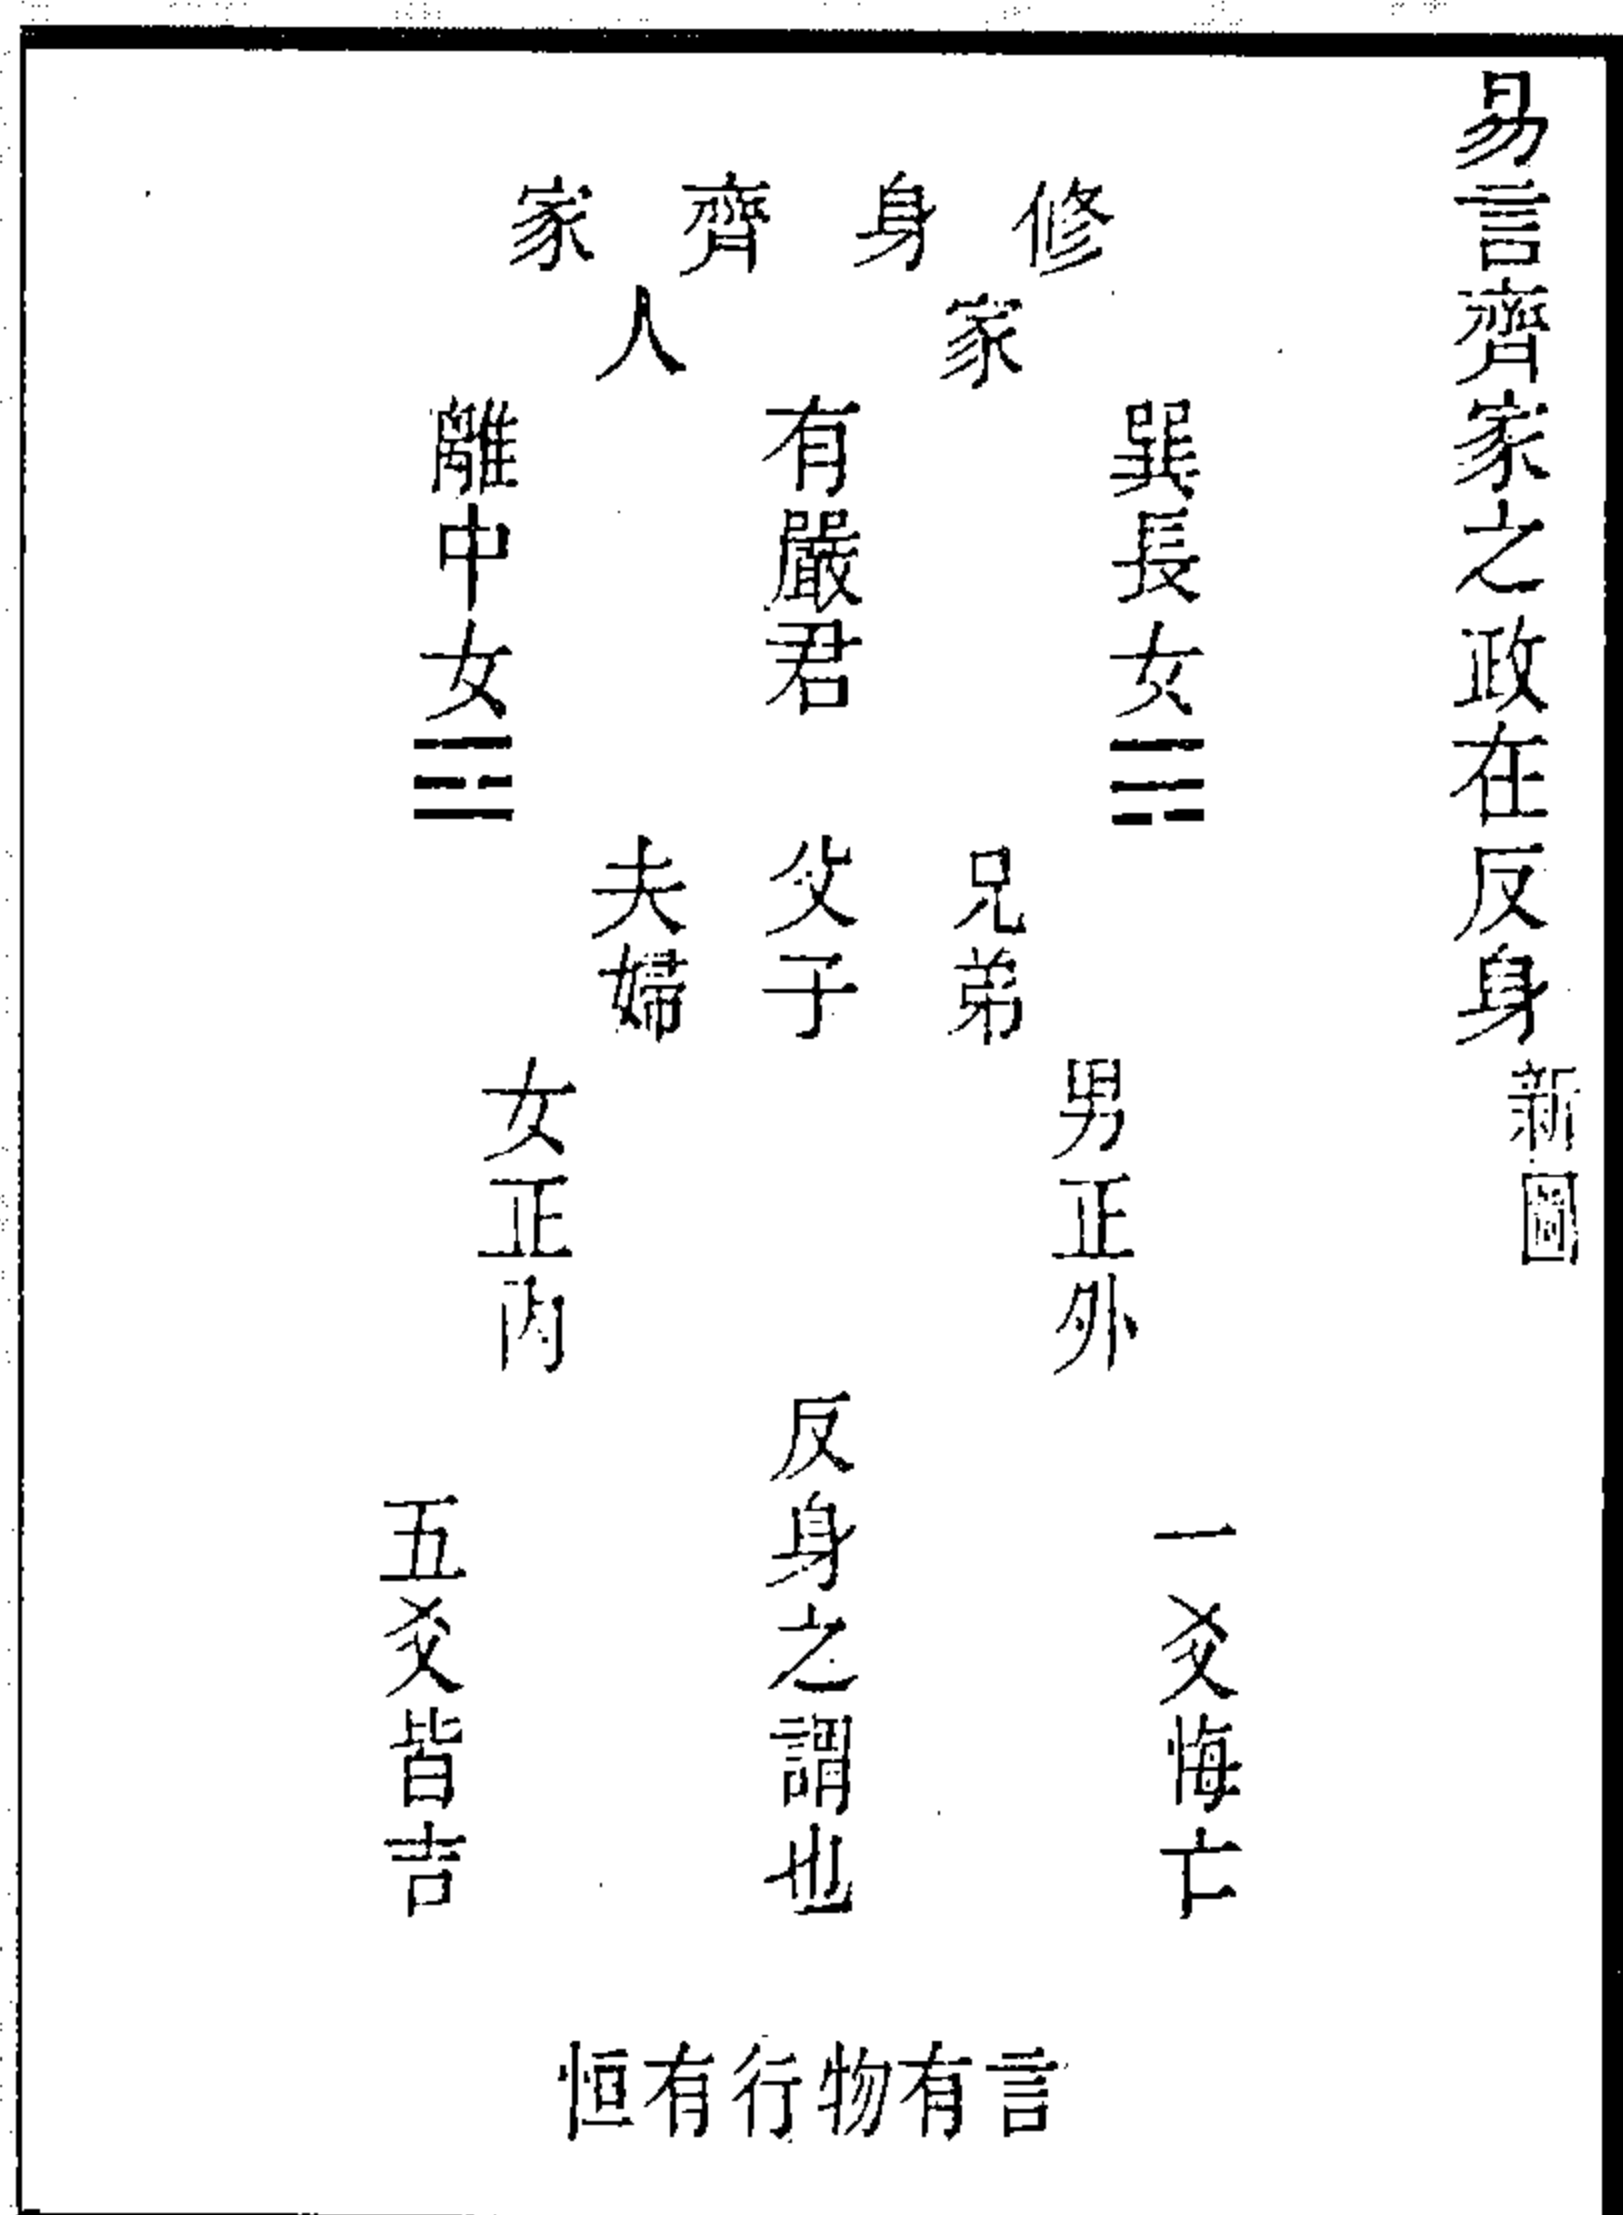 易言齊家之政在反身
新圖
修身齊家
家人
巽長女☴
有嚴君
離中女☲
兄弟
父子
夫婦
男正外
女正內
一爻悔亡
反身之謂也
五爻皆吉
言有物行有恒